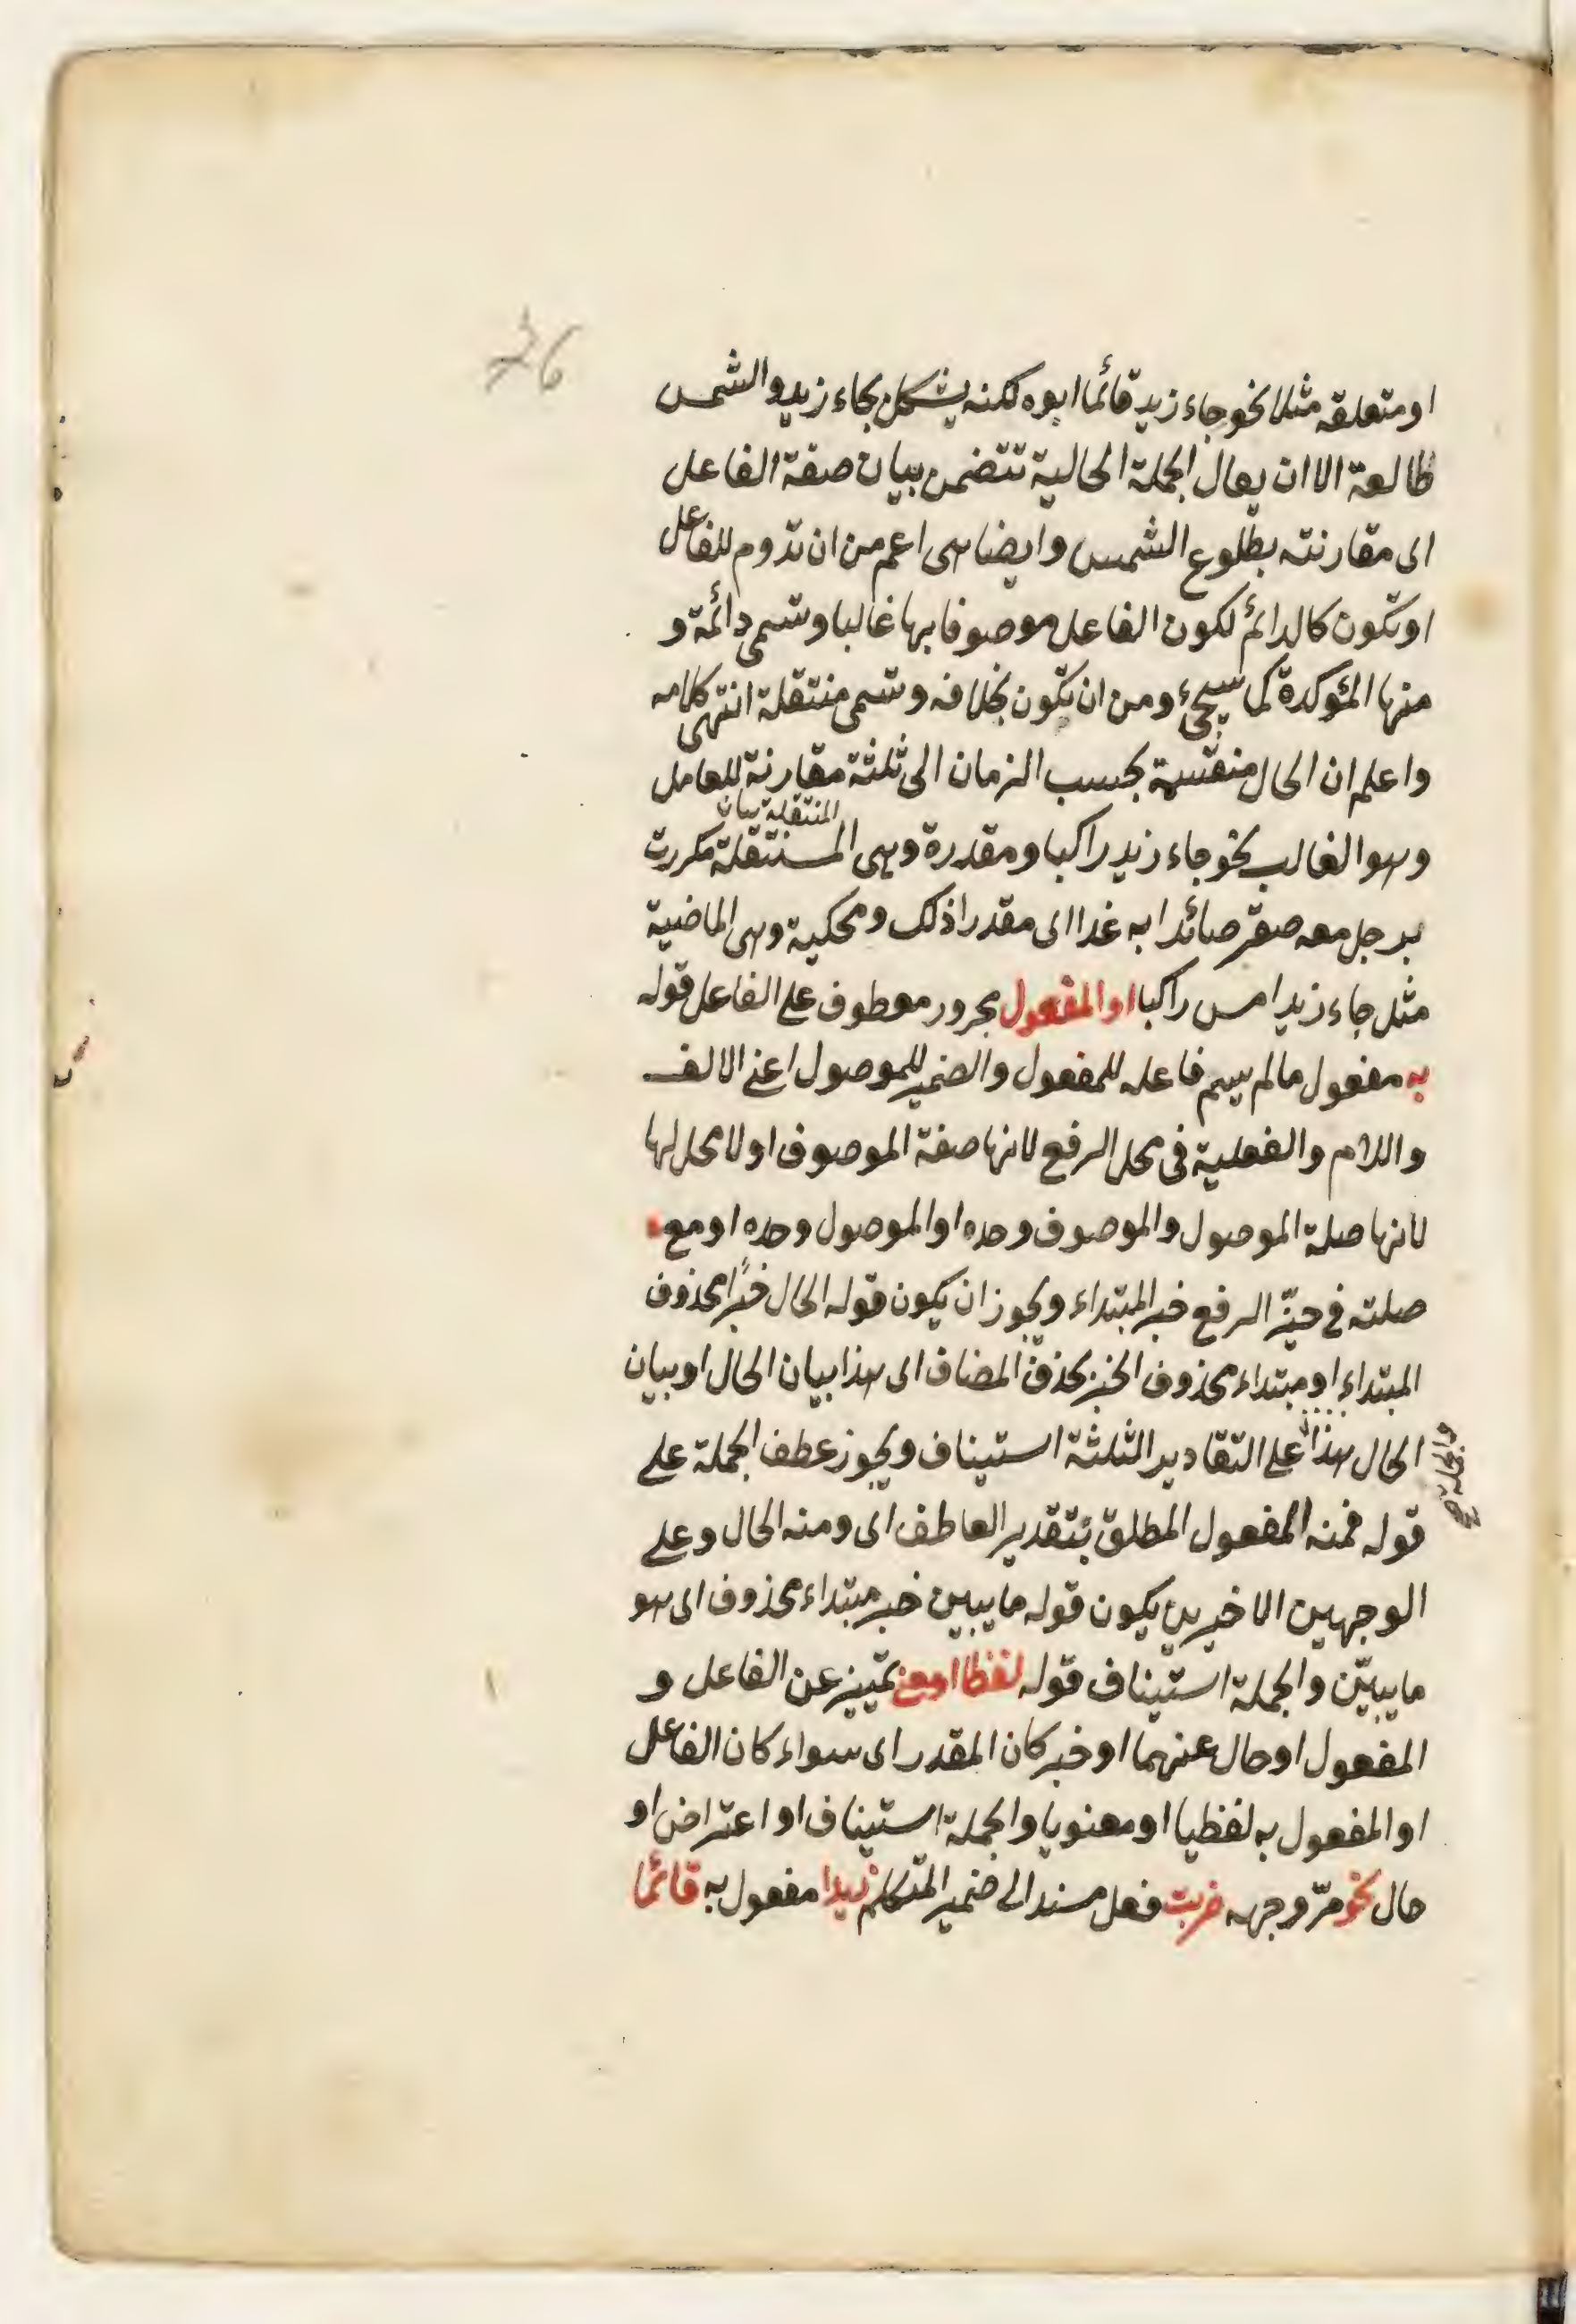 36
او متعلقه مثلا نحو جاء زيد قائما ابوه لكنه يشكل بجاء زيد والشمس
طالعة الا ان يقال الجملة الحالية تتضمن بيان صفة الفاعل
اى مقارنته بطلوع الشمس وايضا هى اعم من ان تدوم للفاعل
او تكون كالدائم لكون الفاعل موصوفا بها غالبا وتسمى دائمة و
منها المؤكدة كما سيجئ ومن ان تكون بخلافه وتسمى منتقلة انتهى كلامه
واعلم ان الحال منقسمة بحسب الزمان الى ثلثة مقارنة للعامل
المنتقلة بيان
وهو الغالب نحو جاء زيد راكبا ومقدرة وهى المستنقلة مكررت
برجل معه صقر صائدا به غدا اى مقدرا ذلك ومحكية وهى الماضية
مثل جاء زيد امس راكبا او المفعول مجرور معطوف على الفاعل قوله
به مفعول مالم يسم فاعله للمفعول والضمير للموصول اعنى الالف
واللام والفعلية فى محل الرفع لانها صفة الموصوف او لا محل لها
لانها صلة الموصول والموصوف وحده او الموصول وحده او مع
صلته فى حيّز الرفع خبر المبتداء ويجوز ان يكون قوله الحال خبرًا محذوف
المبتداء او مبتداء محذوف الخبر بحذف المضاف اى هذا بيان الحال او بيان
الحال هذا على التقادير الثلثة استيناف ويجوز عطف الجملة على
والجملة صح
قوله فمنه المفعول المطلق بتقدير العاطف اى ومنه الحال وعلى
الوجهين الاخيرين يكون قوله ما يبين خبر مبتداء محذوف اى هو
ما يبيّن والجملة استيناف قوله لفظا او معنى تمييز عن الفاعل و
المفعول او حال عنهما او خبر كان المقدر اى سواء كان الفاعل
او المفعول به لفظيا او معنويا والجملة استيناف او اعتراض او
حال نحو مرّ وجهه ضربت فعل مسند الى ضمير المتكلم زيدا مفعول به قائما